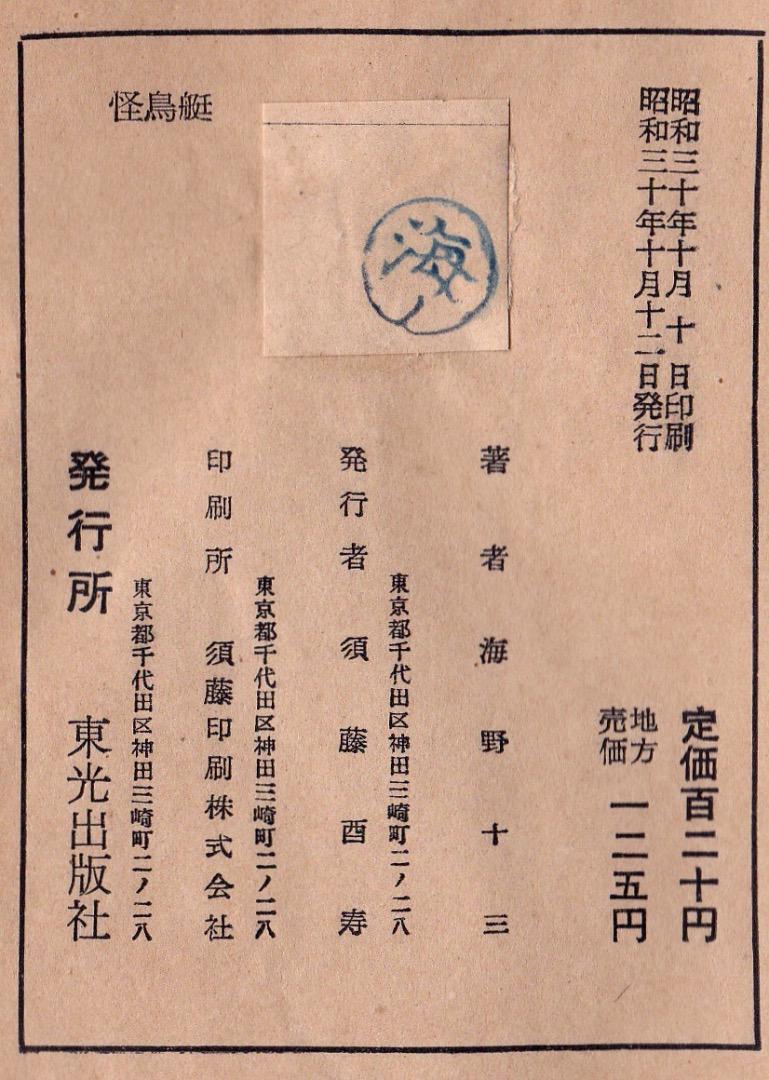 昭和三十年十月 十 日印刷
昭和三十年十月十二日発行
定価百二十円
地方
売価 一二五円
怪鳥艇
海
著者 海野十三
東京都千代田区神田三崎町二ノ二八
発行者 須藤酉寿
東京都千代田区神田三崎町二ノ二八
印刷所 須藤印刷株式会社
東京都千代田区神田三崎町二ノ二八
発行所 東光出版社